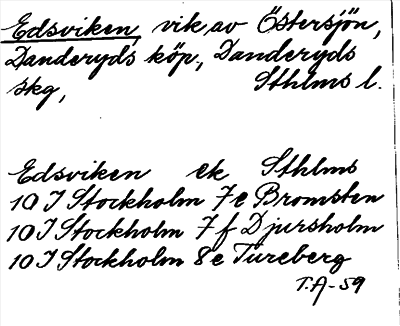 Edsviken, vik av Östersjön,
Danderyds köp., Danderyds
skg, Sthlms l.
Edsviken ek Sthlms
10 I Stockholm 7e Bromsten
10 I Stockholm 7f Djursholm
10 I Stockholm 8e Tureberg
T.A-59